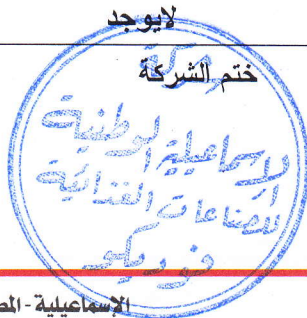 لايوجد
ختم الشركة
شركة
الإسماعيلية الوطنية
للصناعات الغذائية
فوديكو
الإسماعيلية - المـ